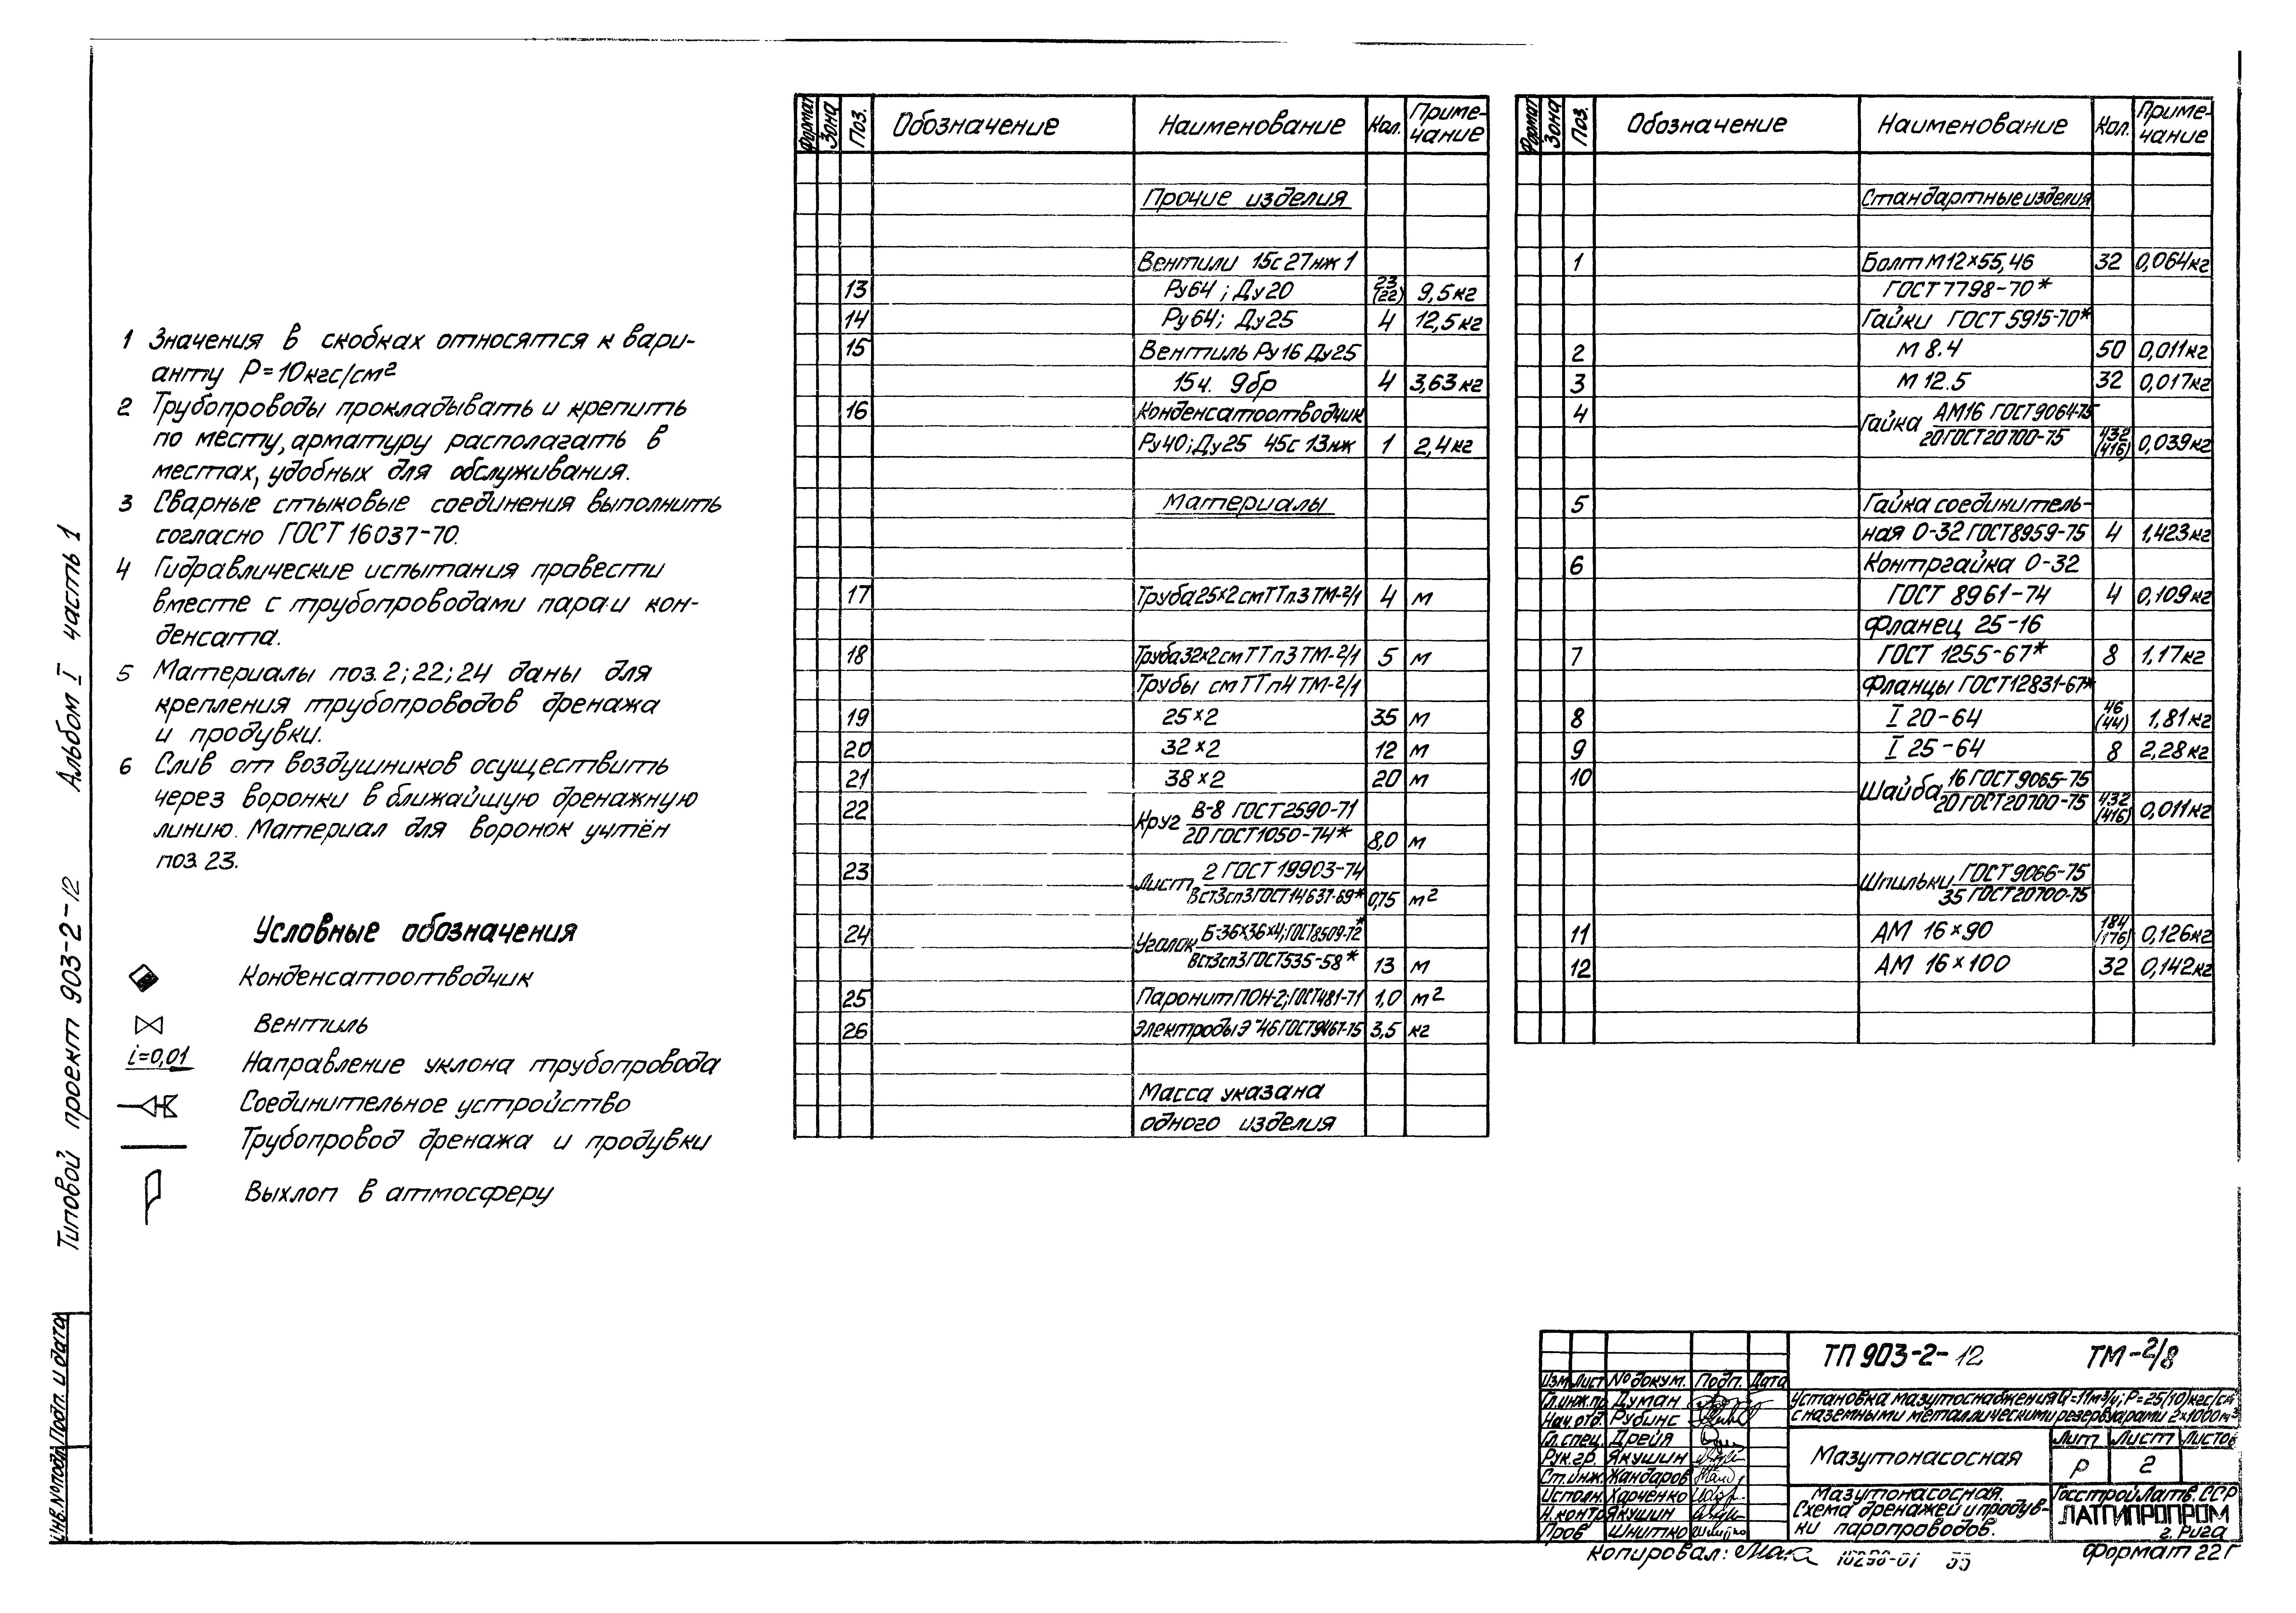 Типовой проект 903-2-12 Альбом I часть 1
Инв.№подл. Подп. и дата
1 Значения в скобках относятся к вари-
анту Р=10кгс/см²
2 Трубопроводы прокладывать и крепить
по месту, арматуру располагать в
местах, удобных для обслуживания.
3 Сварные стыковые соединения выполнить
согласно ГОСТ 16037-70.
4 Гидравлические испытания провести
вместе с трубопроводами пара и кон-
денсата.
5 Материалы поз. 2; 22; 24 даны для
крепления трубопроводов дренажа
и продувки.
6 Слив от воздушников осуществить
через воронки в ближайшую дренажную
линию. Материал для воронок учтён
поз 23.
Условные обозначения
Конденсатоотводчик
Вентиль
i=0,01 Направление уклона трубопровода
Соединительное устройство
Трубопровод дренажа и продувки
Выхлоп в атмосферу
Формат Зона Поз. Обозначение Наименование Кол. Приме-
чание
Прочие изделия
Вентили 15с27нж1
13 Ру64; Ду20 23 (22) 9,5кг
14 Ру64; Ду25 4 12,5кг
15 Вентиль Ру16 Ду25
15ч. 9бр 4 3,63кг
16 Конденсатоотводчик
Ру40; Ду25 45с 13нж 1 2,4кг
Материалы
17 Труба 25×2 смТТп.3 ТМ-2/1 4 м
18 Труба 32×2 смТТп3 ТМ-2/1 5 м
Трубы смТТп4 ТМ-2/1
19 25×2 35 м
20 32×2 12 м
21 38×2 20 м
22 Круг В-8 ГОСТ2590-71
20 ГОСТ1050-74* 8,0 м
23 Лист 2 ГОСТ 19903-74
Вст3сп3ГОСТ14637-69* 0,75 м²
24 Уголок Б-36×36×4; ГОСТ8509-72*
Вст3сп3ГОСТ535-58* 13 м
25 Паронит ПОН-2; ГОСТ481-71 1,0 м²
26 Электроды Э-46 ГОСТ9467-75 3,5 кг
Масса указана
одного изделия
Формат Зона Поз. Обозначение Наименование Кол. Приме-
чание
Стандартные изделия
1 Болт М12×55,46 32 0,064кг
ГОСТ7798-70*
Гайки ГОСТ 5915-70*
2 М 8.4 50 0,011кг
3 М 12.5 32 0,017кг
4 Гайка АМ16 ГОСТ9064-75
20ГОСТ20700-75 432 (416) 0,039кг
5 Гайка соединитель-
ная 0-32 ГОСТ8959-75 4 1,423кг
6 Контргайка 0-32
ГОСТ 8961-74 4 0,109кг
Фланец 25-16
7 ГОСТ 1255-67* 8 1,17кг
Фланцы ГОСТ12831-67*
8 I 20-64 46 (44) 1,81кг
9 I 25-64 8 2,28кг
10 Шайба 16 ГОСТ9065-75
20 ГОСТ20700-75 432 (416) 0,011кг
Шпильки ГОСТ9066-75
35 ГОСТ20700-75
11 АМ 16×90 184 (176) 0,126кг
12 АМ 16×100 32 0,142кг
ТП 903-2-12 ТМ-2/8
Изм Лист №докум. Подп. Дата
Гл.инж.пр. Думан
Нач.отд. Рубинс
Гл.спец. Дрейя
Рук.гр. Якушин
Ст.инж. Жандаров
Исполн. Харченко
Н.контр Якушин
Пров Шнитко
Установка мазутоснабжения Q=11м³/ч; Р=25(10)кгс/см²
с наземными металлическими резервуарами 2×1000м³
Мазутонасосная
Лит Лист Листов
Р 2
Мазутонасосная.
Схема дренажей и продув-
ки паропроводов.
Госстрой Латв.ССР
ЛАТГИПРОПРОМ
г. Рига
Копировал: 35
Формат 22Г